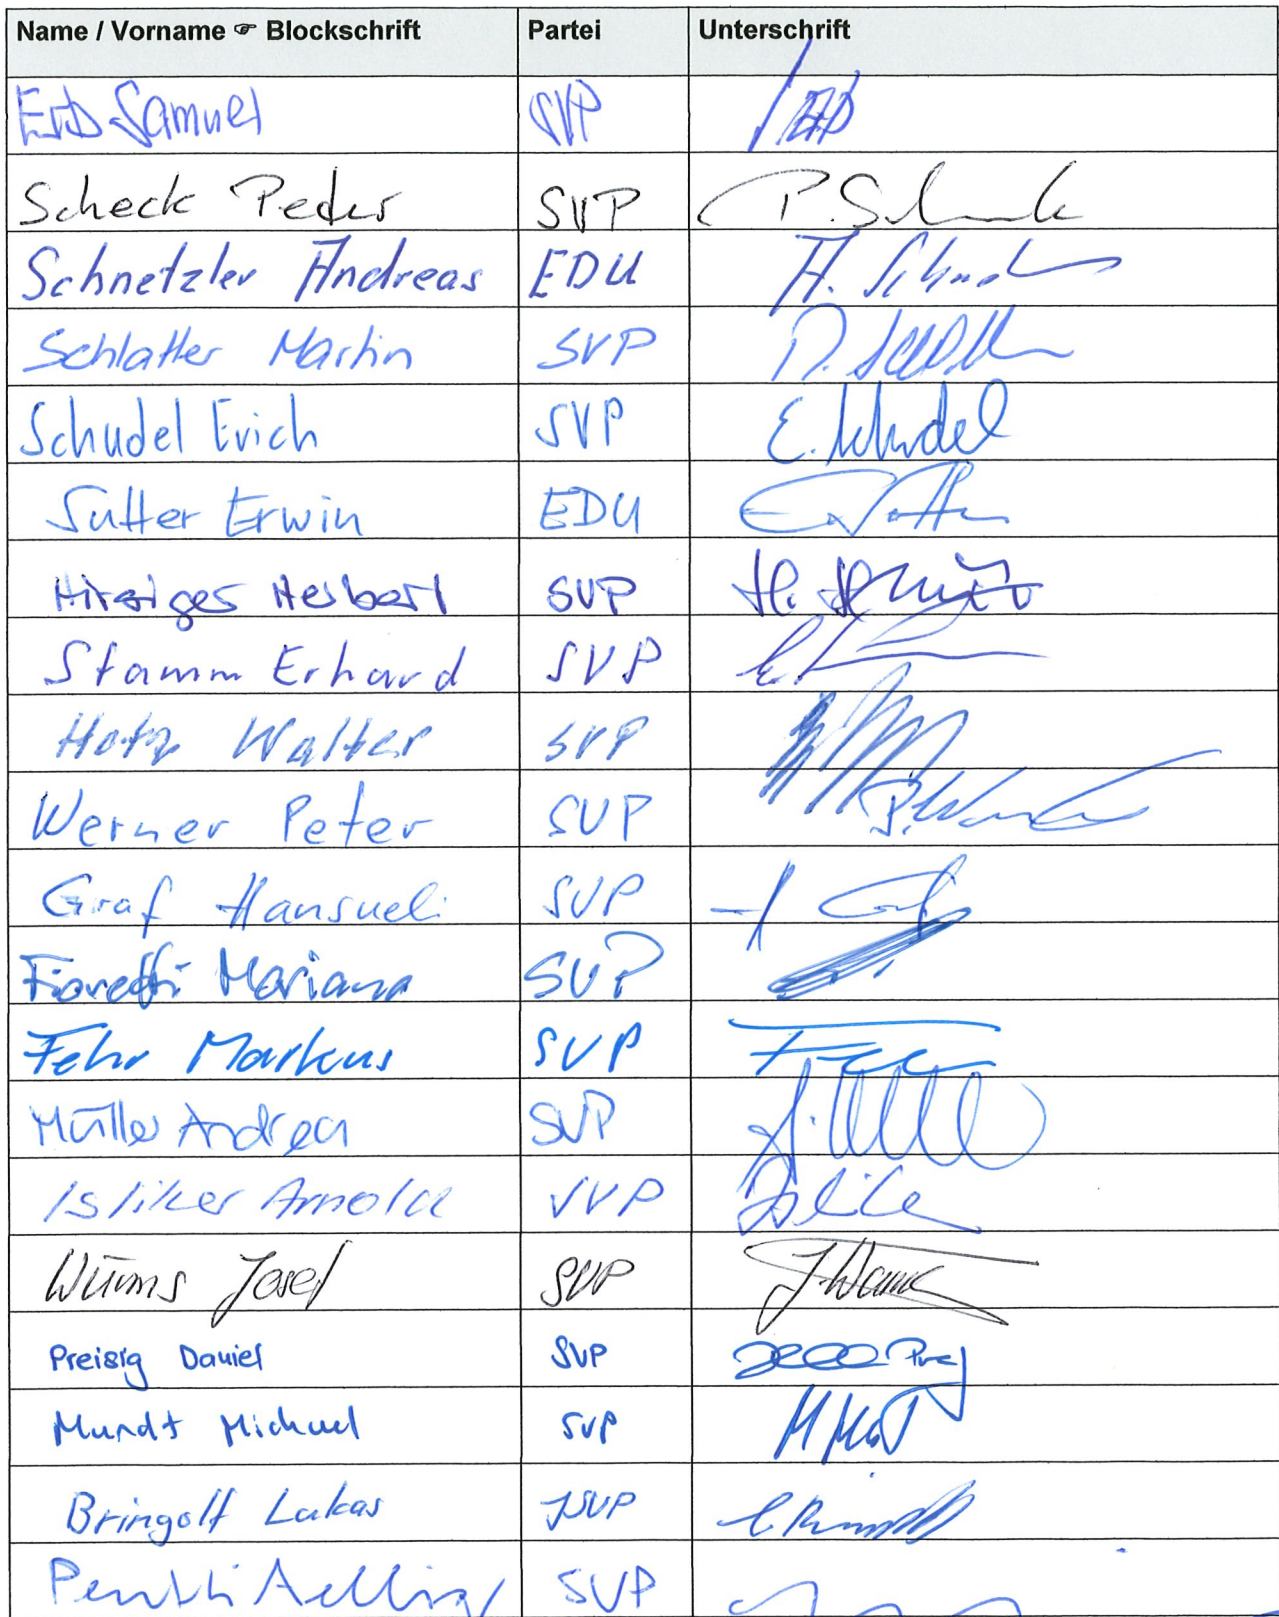 Name / Vorname ☞ Blockschrift Partei Unterschrift
Erb Samuel SVP
Scheck Peter SVP P. Scheck
Schnetzler Andreas EDU A. Schnetzler
Schlatter Martin SVP
Schudel Erich SVP E. Schudel
Sutter Erwin EDU
Hirsiger Herbert SVP
Stamm Erhard SVP
Hotz Walter SVP
Werner Peter SVP P. Werner
Graf Hansueli SVP
Fioretti Mariano SVP
Fehr Markus SVP
Müller Andrea SVP
Isliker Arnold SVP Isliker
Würms Josef SVP
Preisig Daniel SVP
Mundt Michael SVP
Bringolf Lukas JSVP
Pentti Aellig SVP